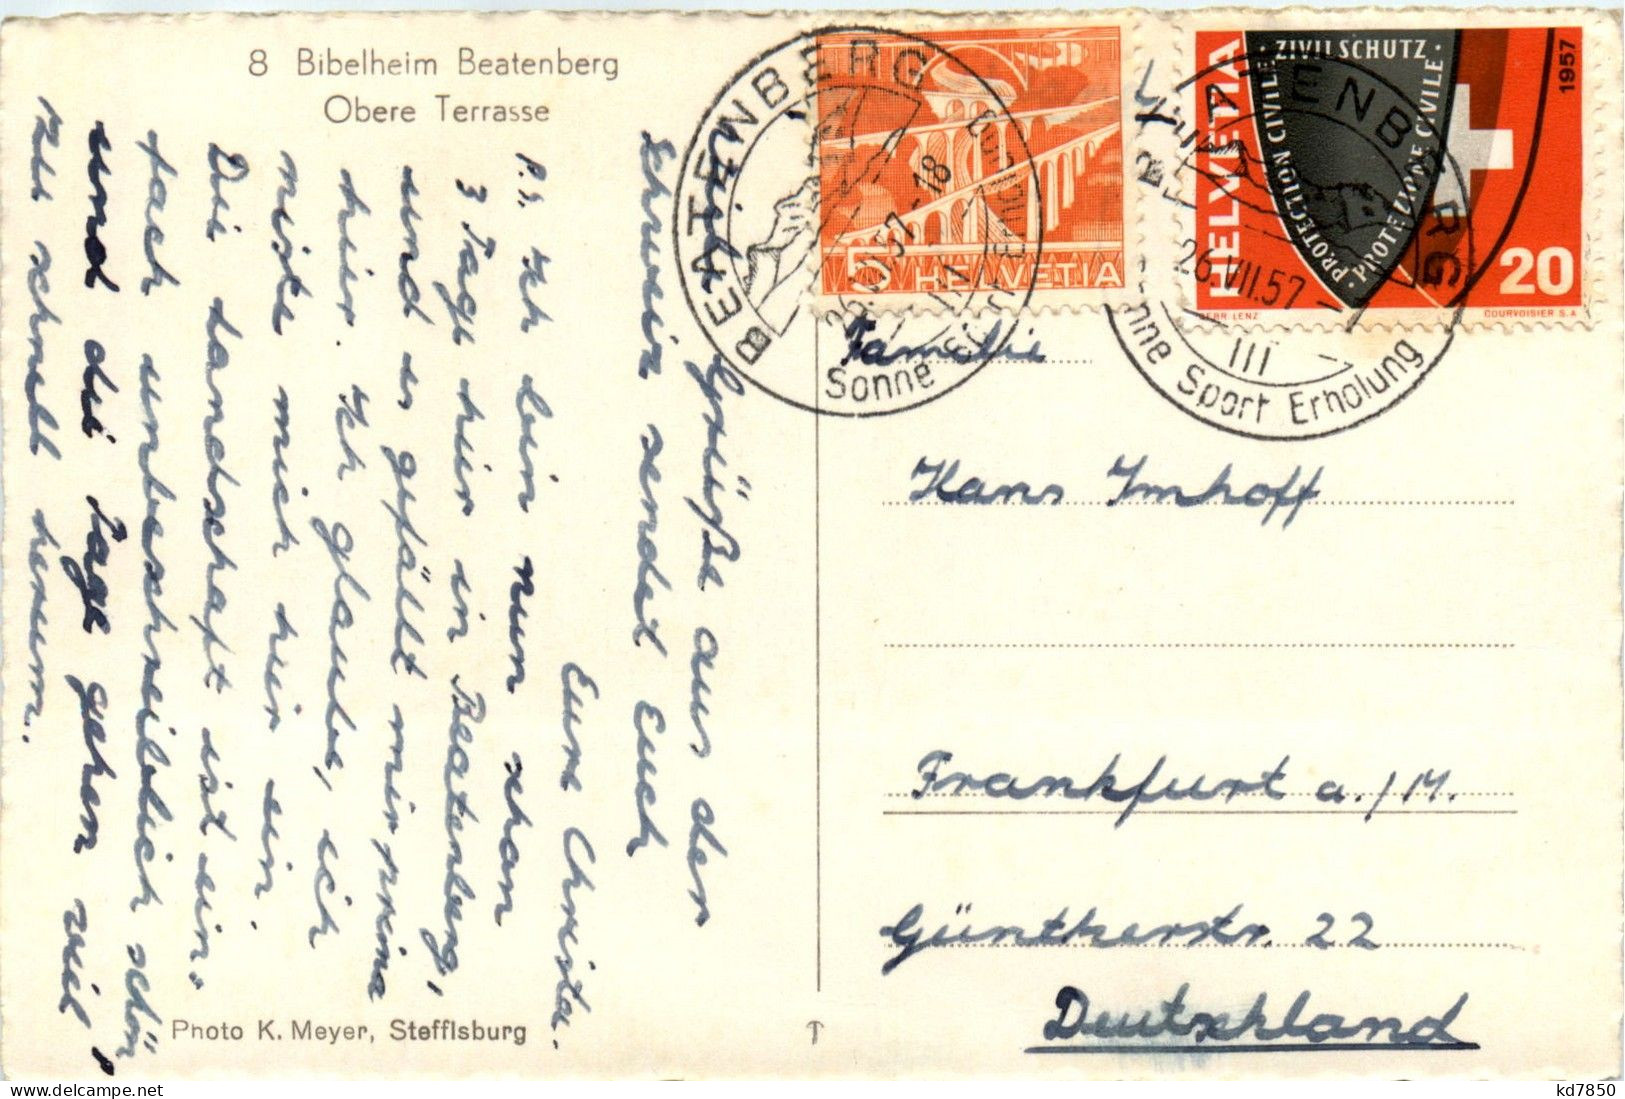 8 Bibelheim Beatenberg
Obere Terrasse
Viele Grüße aus der
Schweiz sendet Euch
Eure Christa.
P.S. Ich bin nun schon
3 Tage hier in Beatenberg,
und es gefällt mir prima
hier. Ich glaube, ich
niste mich hier ein.
Die Landschaft ist ein-
fach unbeschreiblich schön
und die Tage gehen viel
zu schnell herum.
Photo K. Meyer, Steffisburg
BEATENBERG
26.VII.57-18
Sonne Sport Erholung
5 HELVETIA
HELVETIA
· ZIVILSCHUTZ ·
PROTECTION CIVILE
PROTEZIONE CIVILE
1957
20
GEBR. LENZ
COURVOISIER S.A.
BEATENBERG
26.VII.57
III
Sonne Sport Erholung
Familie
Hans Imhoff
Frankfurt a./M.
Güntherstr. 22
Deutschland
kd7850